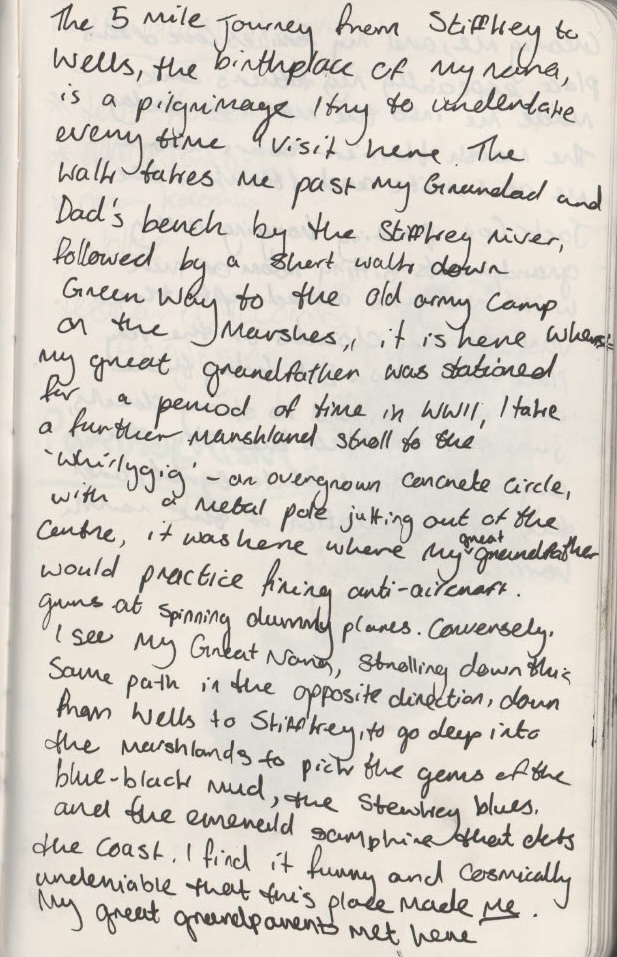 The 5 mile journey from Stiffkey to
Wells, the birthplace of my nana,
is a pilgrimage I try to undertake
every time I visit here. The
walk takes me past my Grandad and
Dad's bench by the Stiffkey river,
followed by a short walk down
Green Way to the old army camp
on the Marshes, it is here where
my great grandfather was stationed
for a period of time in WWII, I take
a further marshland stroll to the
'whirlygig' - an overgrown concrete circle,
with a metal pole jutting out of the
centre, it was here where my great grandfather
would practice firing anti-aircraft
guns at spinning dummy planes. Conversely,
I see my Great Nana, strolling down this
same path in the opposite direction, down
from Wells to Stiffkey, to go deep into
the marshlands to pick the gems of the
blue-black mud, the Stewkey blues.
and the emerald samphire that dots
the coast. I find it funny and cosmically
undeniable that this place made me.
My great grandparents met here